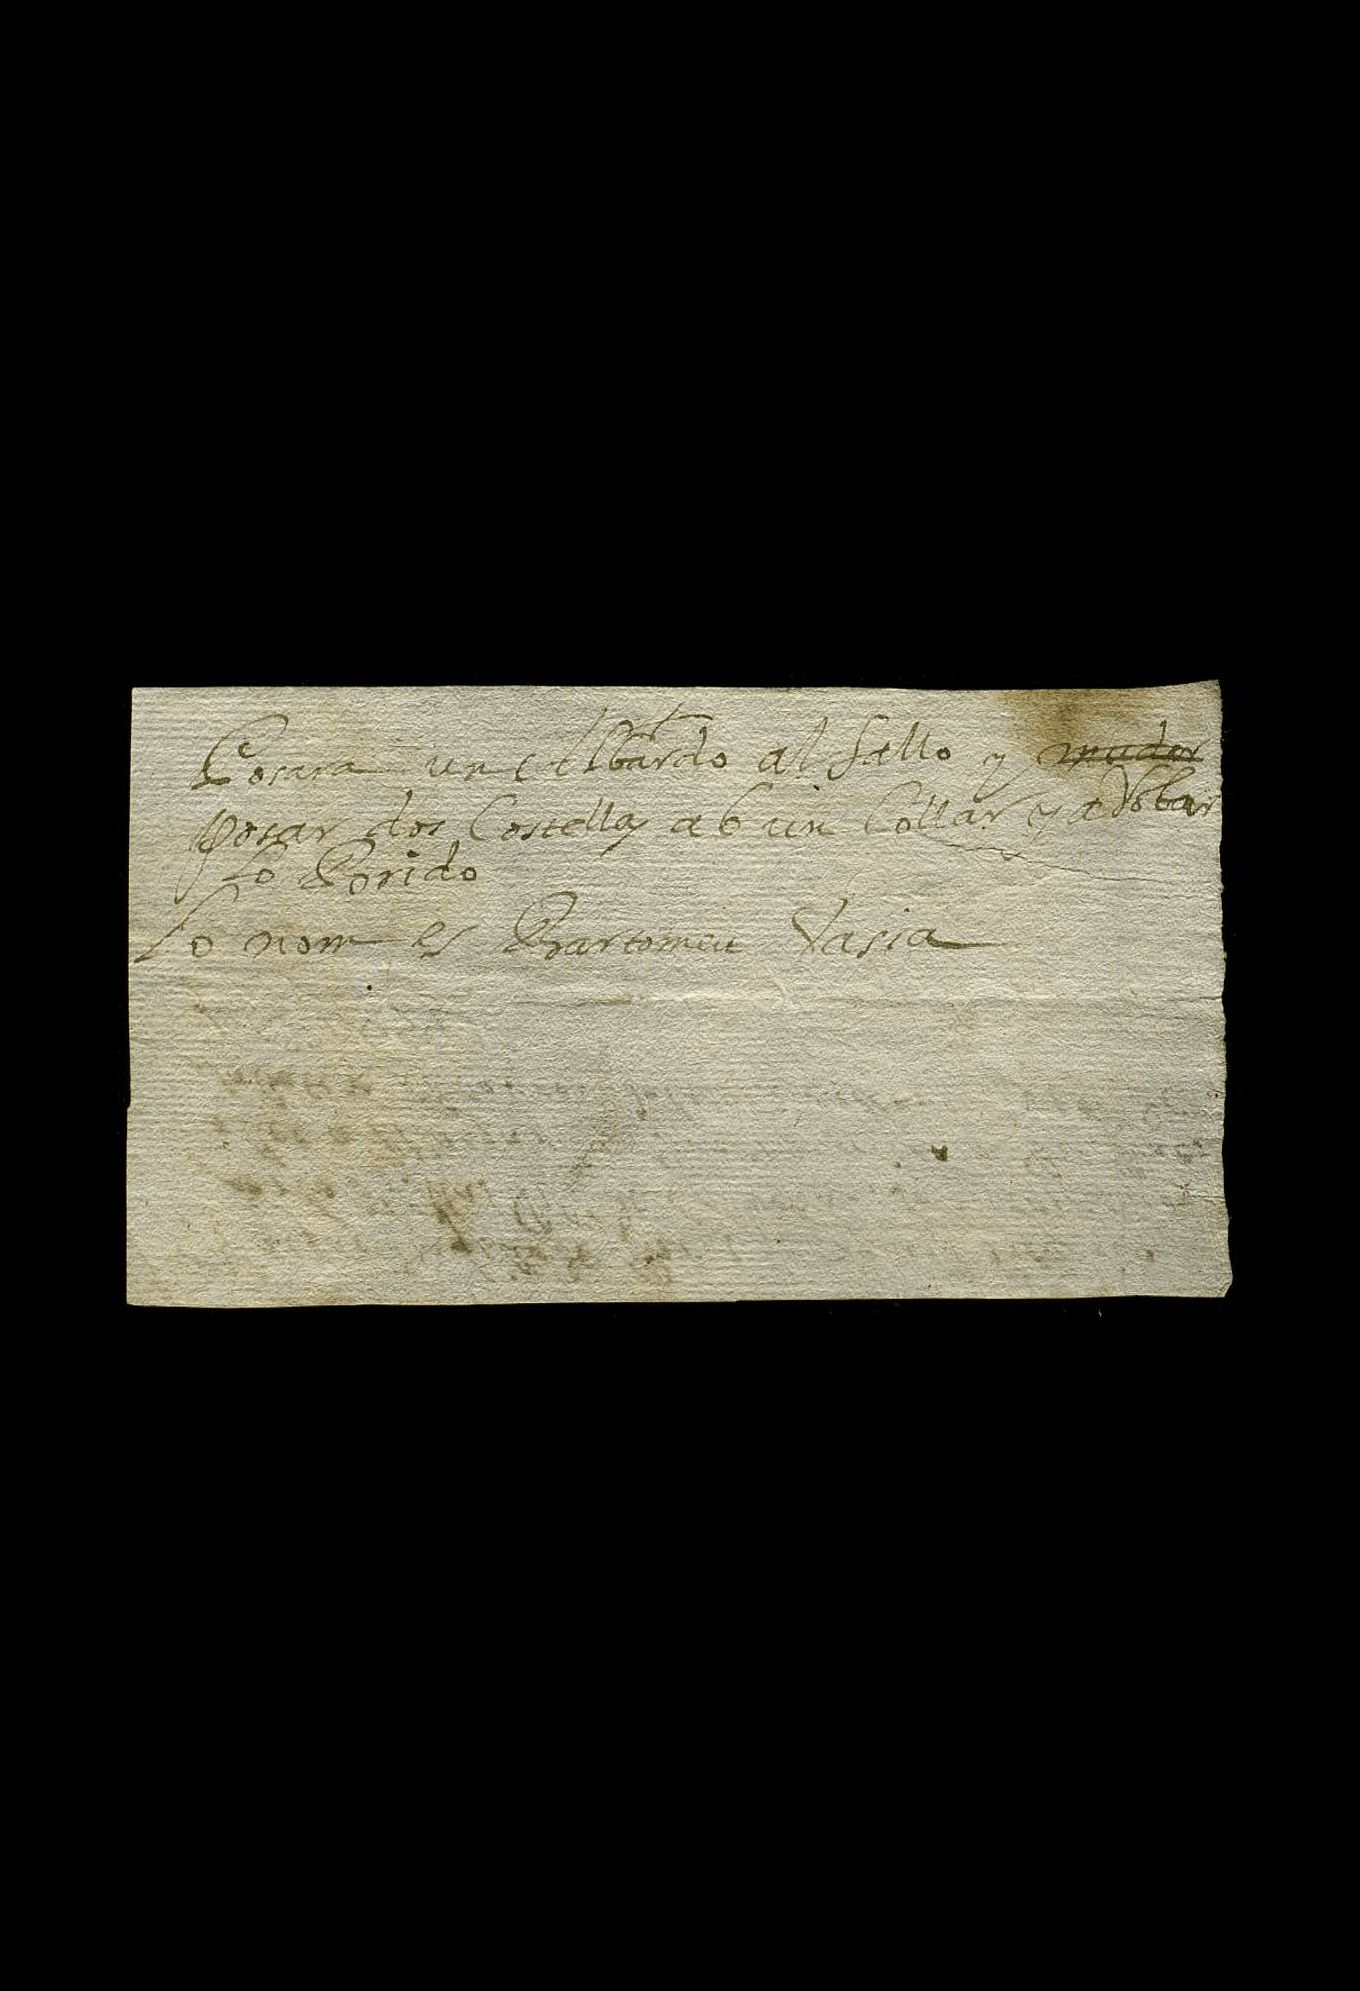 Posara un Albardo al sello y mudar
posar dos Costellas ab un Collar y adobar
lo Brido
lo nom es Bartomeu Vasia